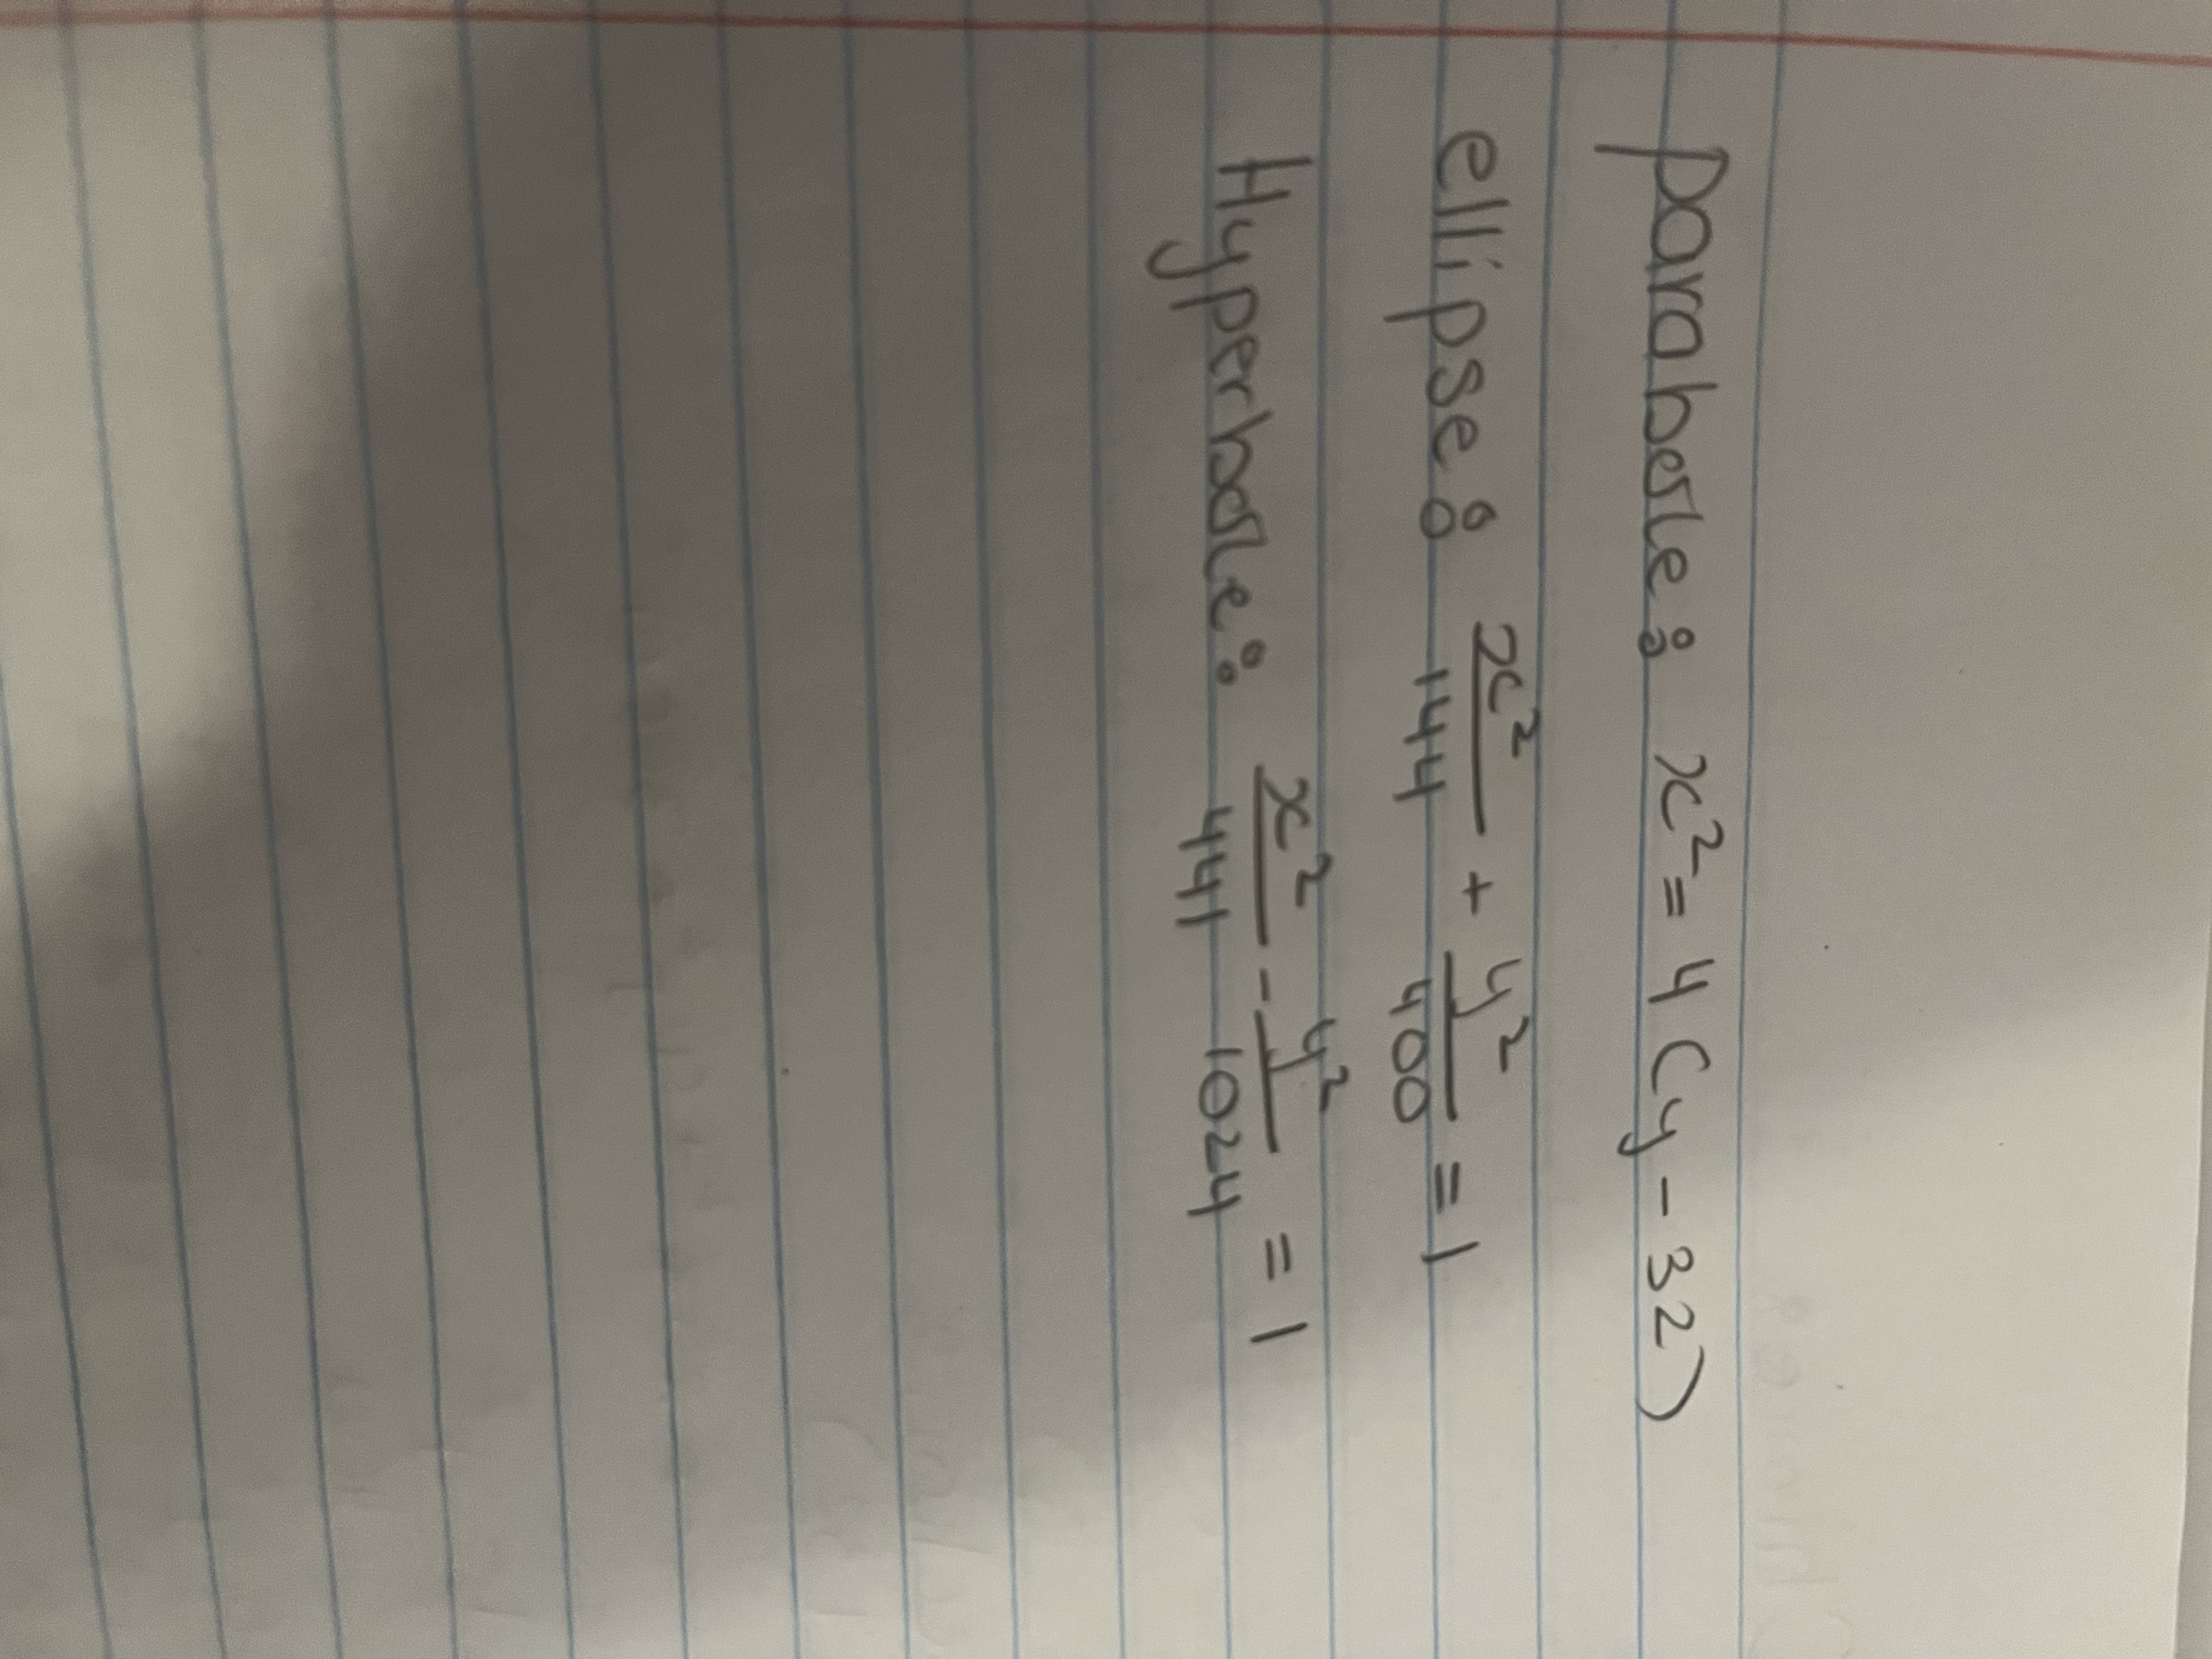 parabole: x² = 4 (y - 32)
ellipse: x²/144 + y²/400 = 1
Hyperbole: x²/441 - y²/1024 = 1